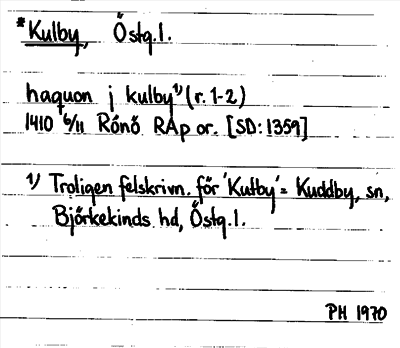 *Kulby, Östg.l.
haquon j kulby¹⁾ (r. 1-2)
1410 6/11 Rönö RAp or. [SD: 1359]
1) Troligen felskrivn. för 'Kutby' = Kuddby, sn,
Björkekinds hd, Östg.l.
PH 1970